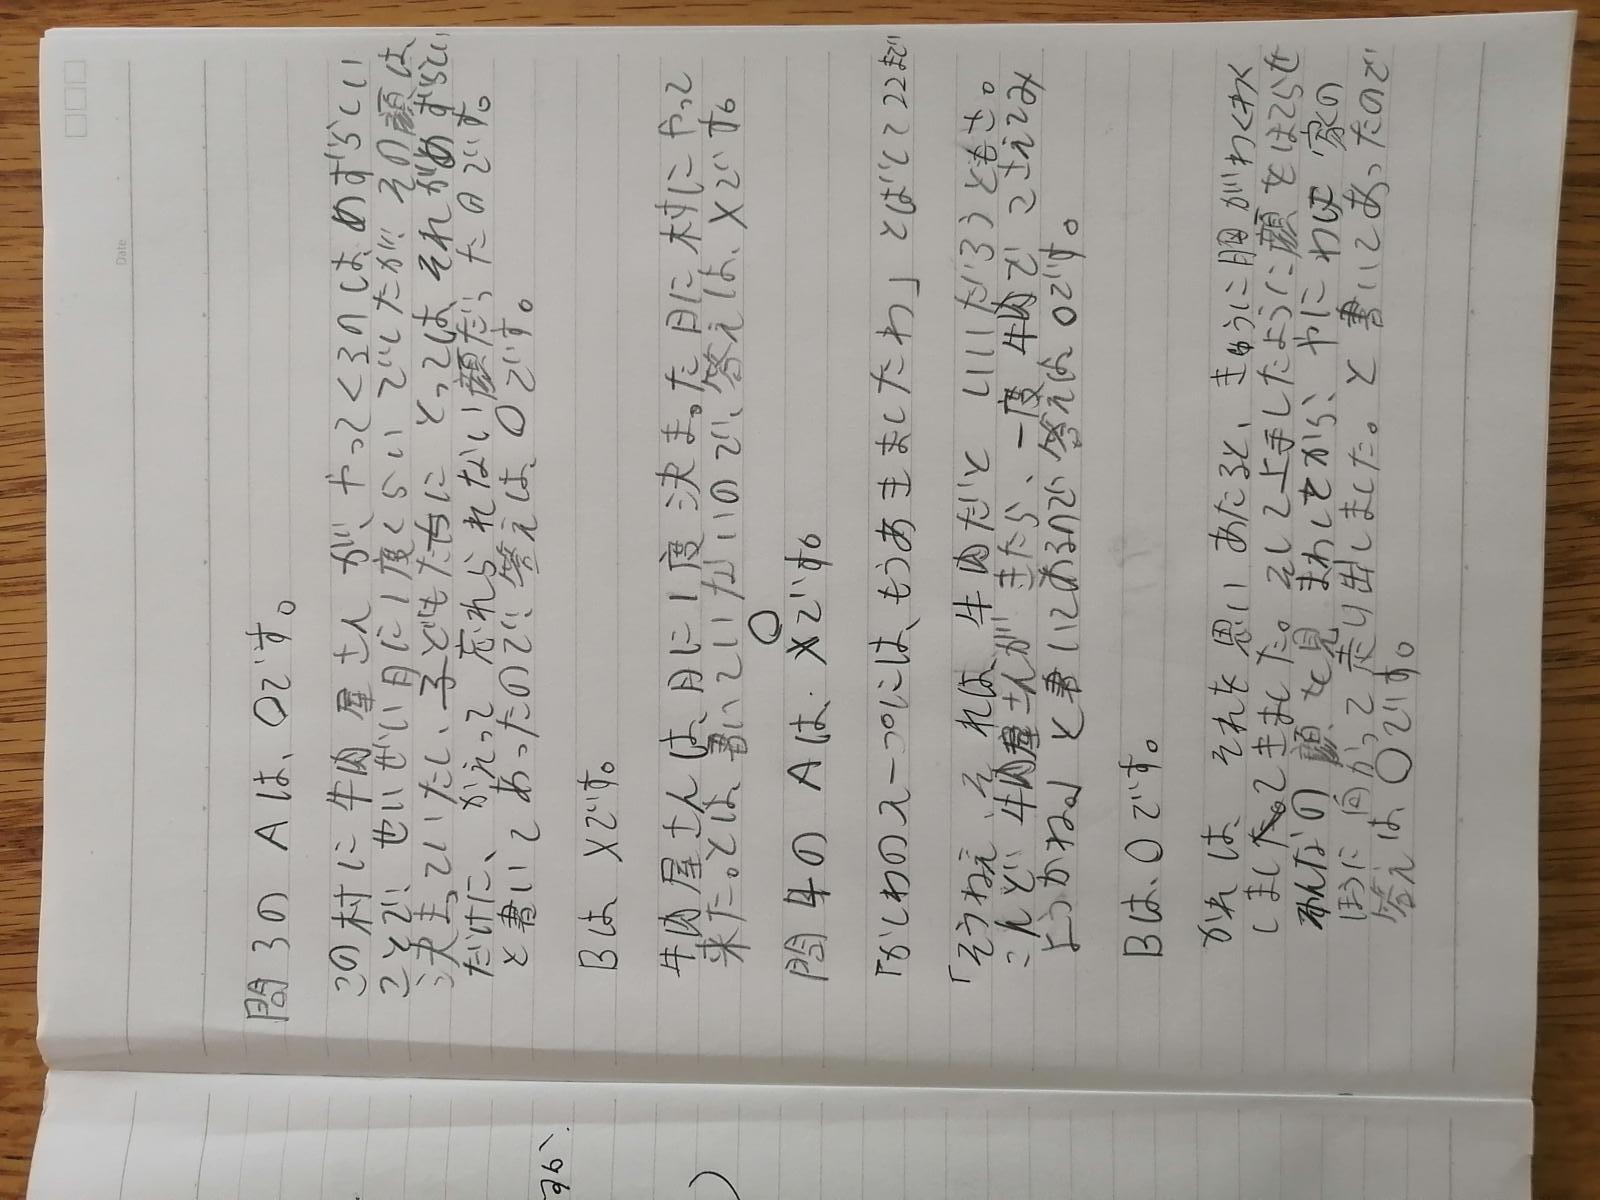 Date
問3の Aは、○です。
この村に牛肉屋さんが、やってくるのはめずらしい
ことで、せいぜい月に1度くらいでしたが、その顔は
決まっていたし、子どもたちに とっては、それがめずらしい
だけに、かえって 忘れられない顔だったのです。
と書いてあったので、答えは、○です。
Bは ×です。
牛肉屋さんは、月に1度 決まった日に村にやって
来た。とは、書いていないので、答えは、×です。
問4の Aは、×です。
○
「かしわのスープには、もうあきましたわ」 とばして22まで
「そうねえ、それは 牛肉だと いいだろうともさ。
こんど、牛肉屋さんが きたら、一度 牛肉で こさえてみ
ようかね。」と書いてあるので 答えは ○です。
Bは、○です。
かれは、それを思いあたると、きゅうに胸がわくわく
しました。してきました。そして上手したように顔をほてらせ
みんなの顔を見まわしてから、やにわに 家の
ほうに向かって走り出しました。と書いてあったので
答えは、○です。